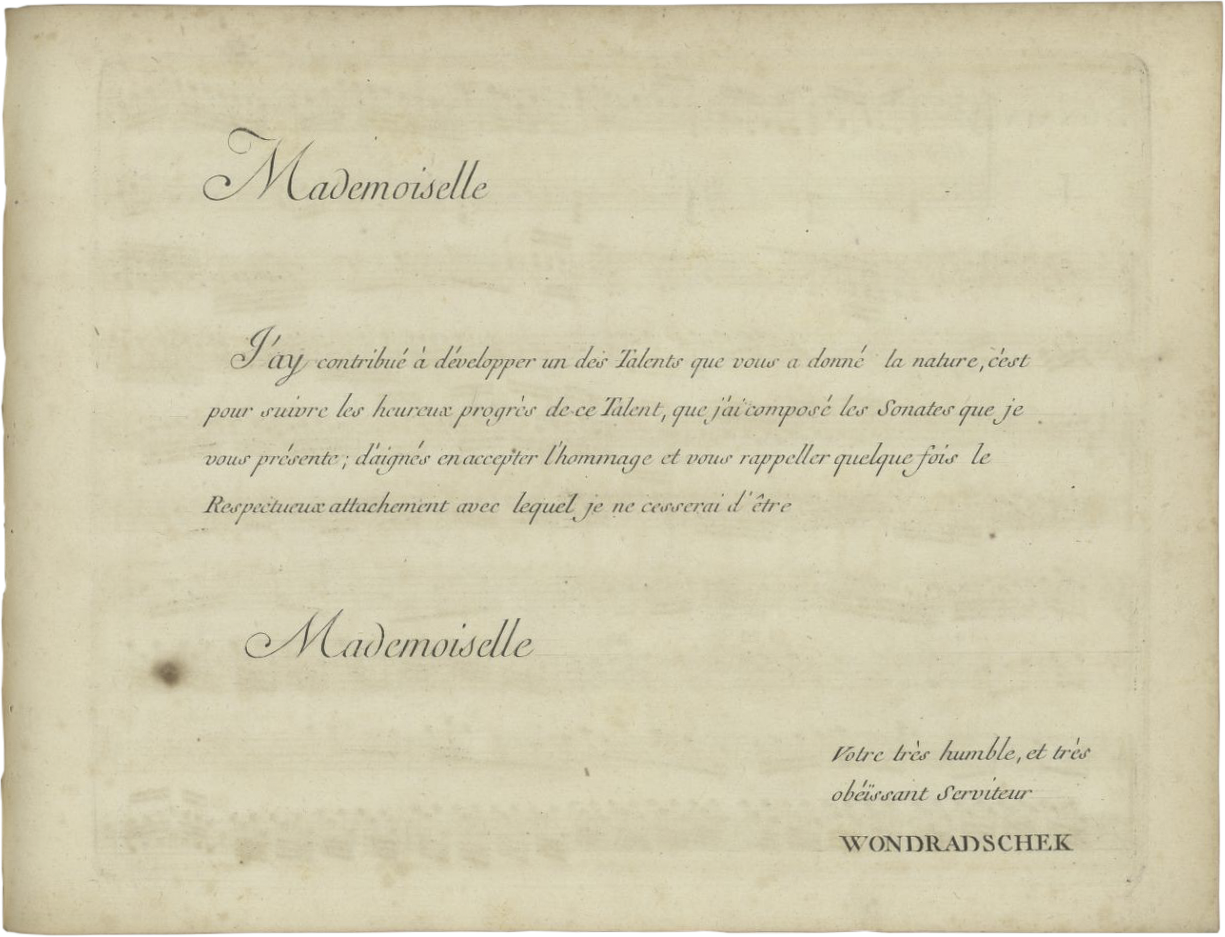 Mademoiselle
J'ay contribué à développer un des Talents que vous a donné la nature, c'est
pour suivre les heureux progrès de ce Talent, que j'ai composé les Sonates que je
vous présente; d'aignés en accepter l'hommage et vous rappeller quelque fois le
Respectueux attachement avec lequel je ne cesserai d'être
Mademoiselle
Votre très humble, et très
obéissant Serviteur
WONDRADSCHEK